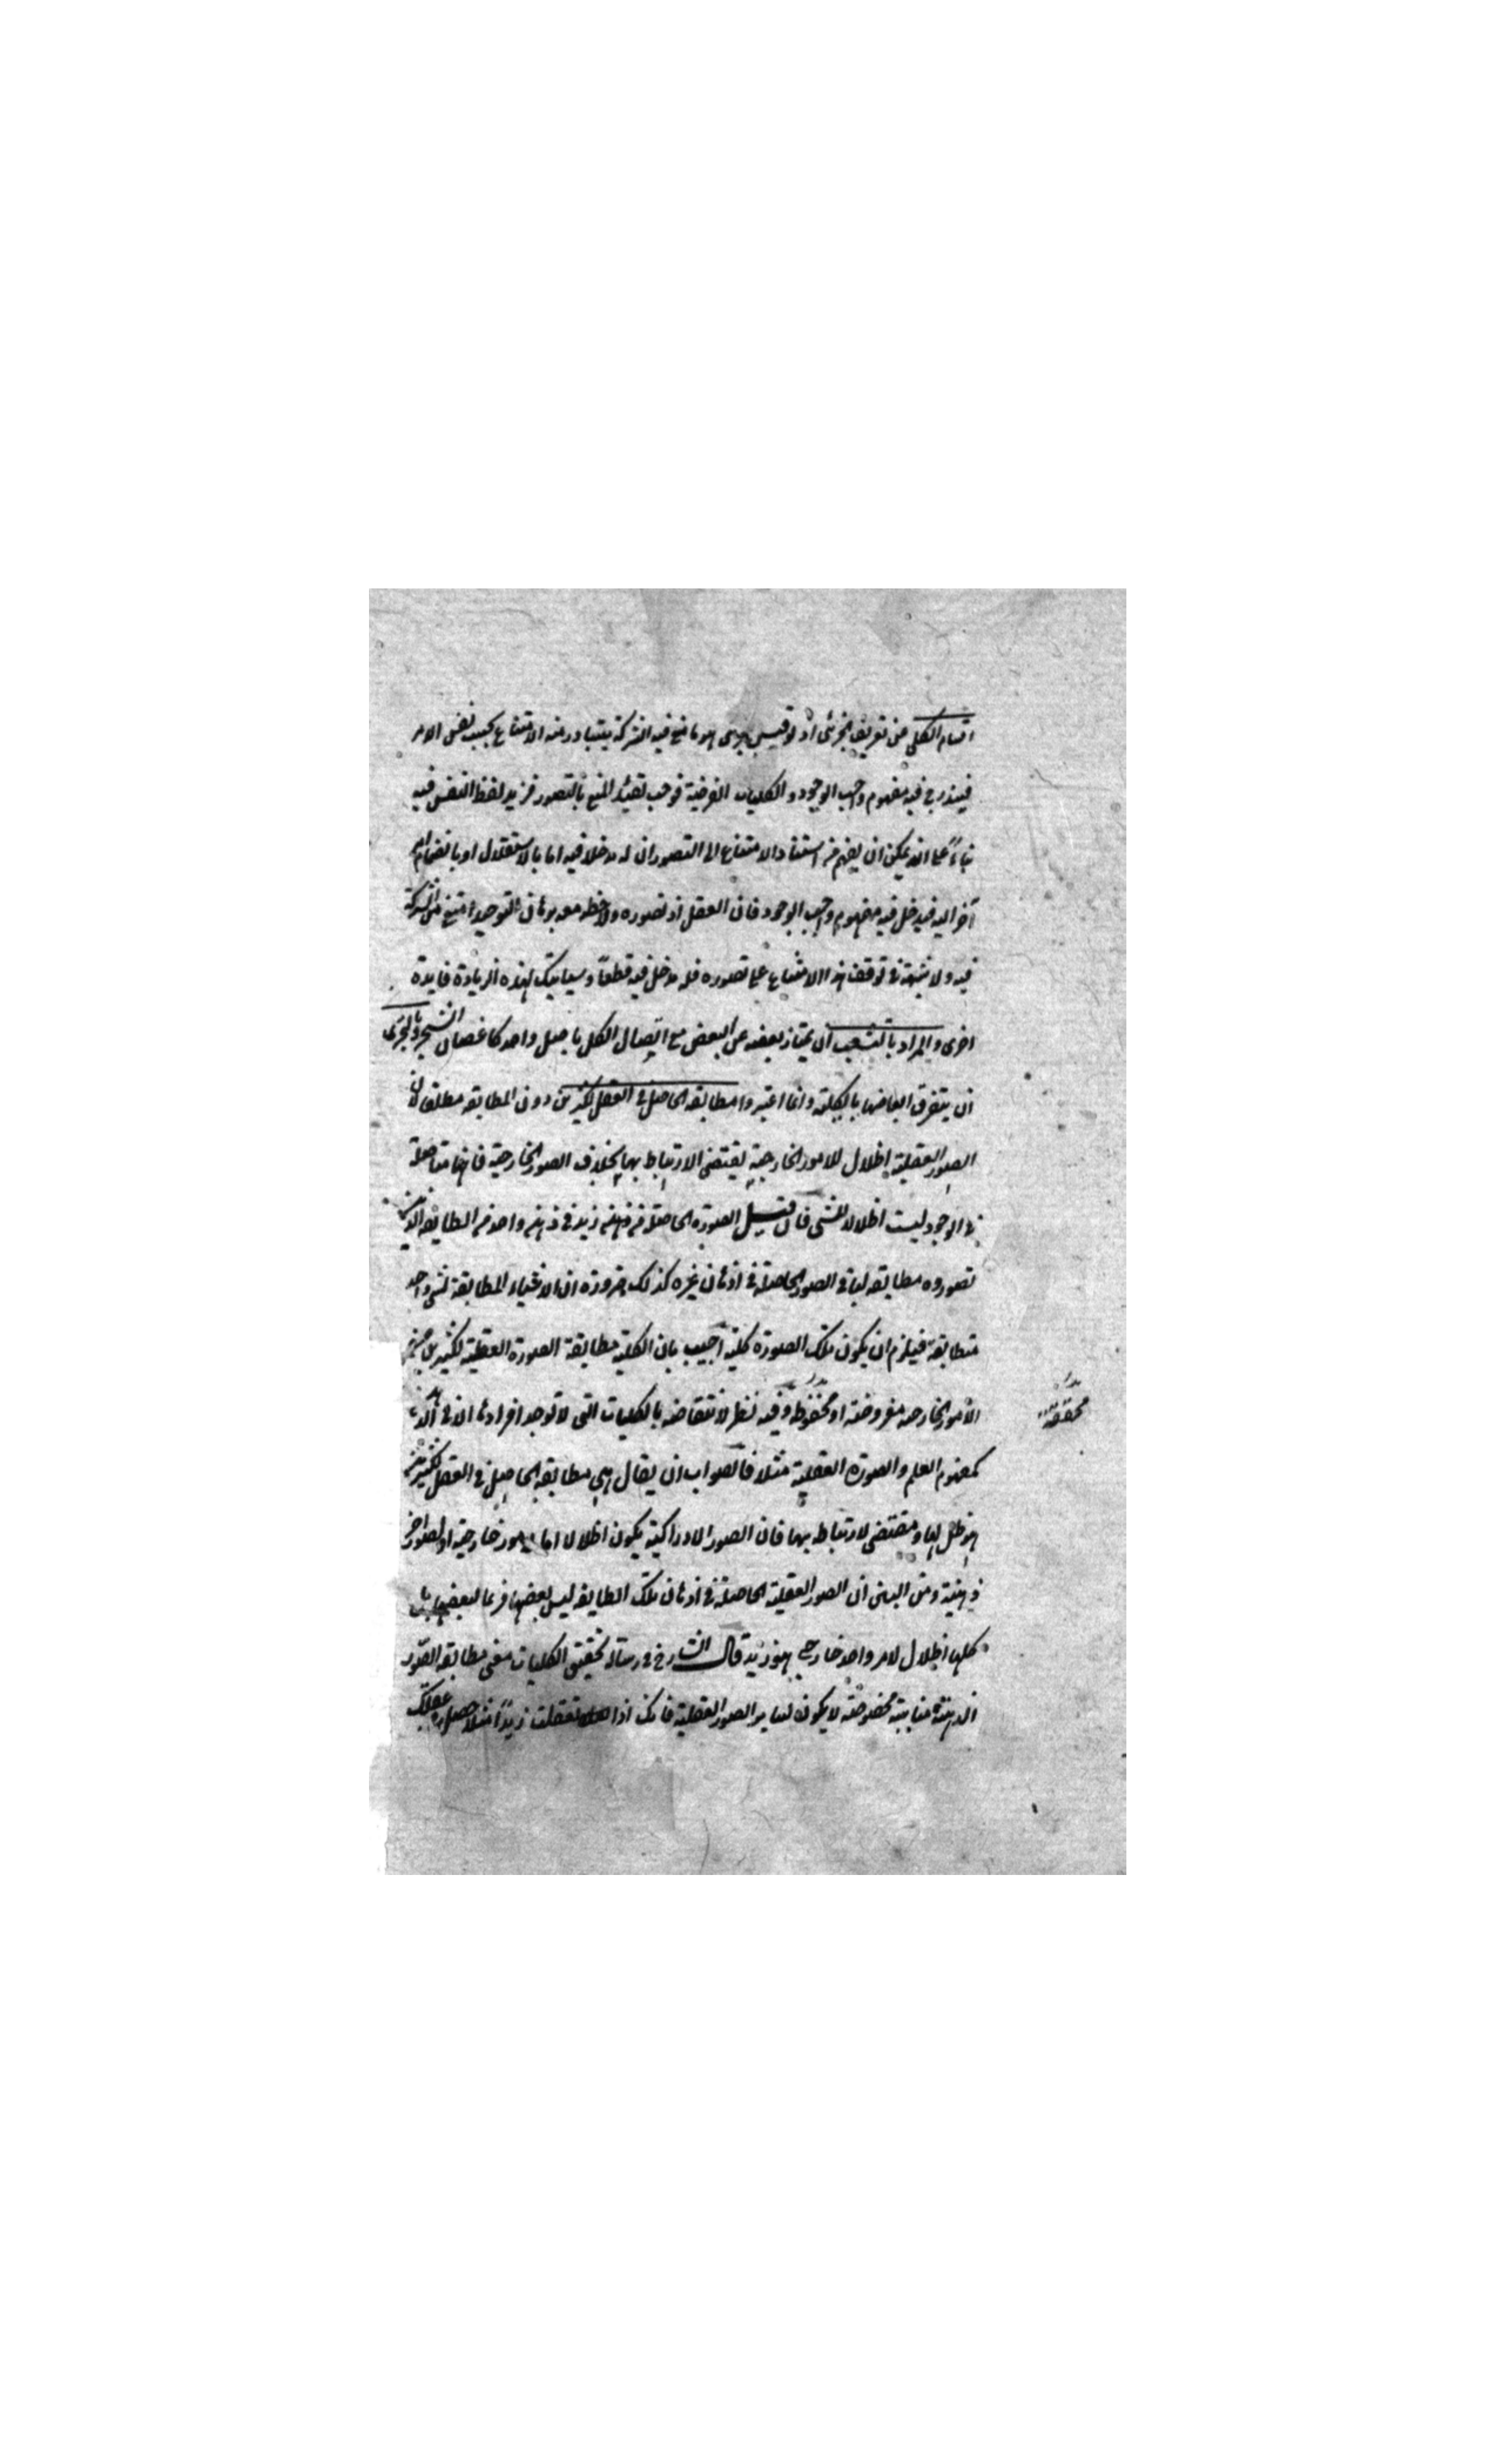 اقسام الكلي عن تعريف الجزئى اذ لو قيل الجزئى هو ما منع فيه الشركة يتبادر منه الامتناع بحسب نفس الامر
فيندرج فيه مفهوم واجب الوجود و الكليات الفرضية فوجب تقييد المنع بالتصور فزيد لفظ النفس فيه
بناءً على انه يمكن ان يفهم من استناد الامتناع الى التصور ان له مدخلا فيه اما بالاستقلال او بانضمام امر
آخر اليه فيدخل فيه مفهوم واجب الوجود فان العقل اذ تصوره ولاحظ معه برهان التوحيد امتنع من الشركة
فيه ولا شبهة في توقف هذا الامتناع على تصوره فله مدخل فيه قطعاً وسيأتيك لهذه الزيادة فايدة
اخرى والمراد بالتشعب ان يمتاز بعضه عن البعض مع اتصال الكل باصل واحد كاغصان الشجر وبالتجزى
ان يتفرق ابعاضها بالكلية وانما اعتبروا مطابقة الحاصل في العقل لكثيرين دون المطابقة مطلقا لان
الصور العقلية اظلال للامور الخارجية يقتضى الارتباط بها بخلاف الصور الخارجية فانها متاصلة
في الوجود ليست اظلالا لشى فان قيل الصورة الحاصلة من زيد في ذهن واحد من الطايفة الذين
تصوروه مطابقة لباقى الصور الحاصلة في اذهان غيره كذلك ضرورة ان الاشياء المطابقة لشى واحد
متطابقة فيلزم ان يكون تلك الصورة كلية اجيب بان الكلية مطابقة الصورة العقلية لكثيرين من
الامور الخارجه مفروضة او محققة وفيه نظر لانتقاضه بالكليات التى لا توجد افرادها الا في الذهن
كمفهوم العلم والصورة العقلية مثلا فالصواب ان يقال هى مطابقة الحاصل في العقل لكثيرين
هو ظل لها و مقتضى لارتباط بها فان الصور الادراكية يكون اظلالا اما لامور خارجية او لصور اخر
ذهنية ومن البين ان الصور العقلية الحاصلة في اذهان تلك الطايفة ليس بعضها فرعا لبعضها بل
كلها اظلال لامر واحد خارجى هو زيد قال الشارح في رسالة تحقيق الكليات معنى مطابقة الصور
الذهنية مناسبة مخصوصة لا يكون لساير الصور العقلية فانك اذا تعقلت زيداً مثلا حصل في عقلك
محققة